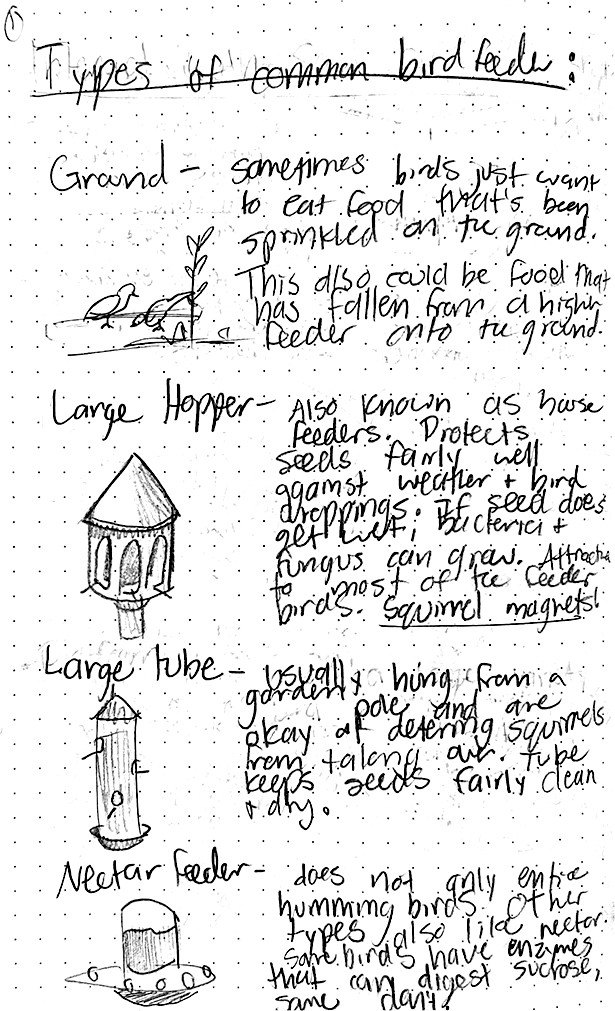 1
Types of common bird feeder:
Ground - sometimes birds just want
to eat food that's been
sprinkled on the ground.
This also could be food that
has fallen from a higher
feeder onto the ground.
Large Hopper - Also known as house
feeders. Protects
seeds fairly well
against weather + bird
droppings. If seed does
get wet, bacteria +
fungus can grow. Attractive
to most of the feeder
birds. Squirrel magnets!
Large tube - usually hung from a
garden pole and are
okay at detering squirrels
from taking over. tube
keeps seeds fairly clean
+ dry.
Nectar feeder - does not only entice
humming birds. Other
types also like nectar.
some birds have enzymes
that can digest sucrose,
some don't.